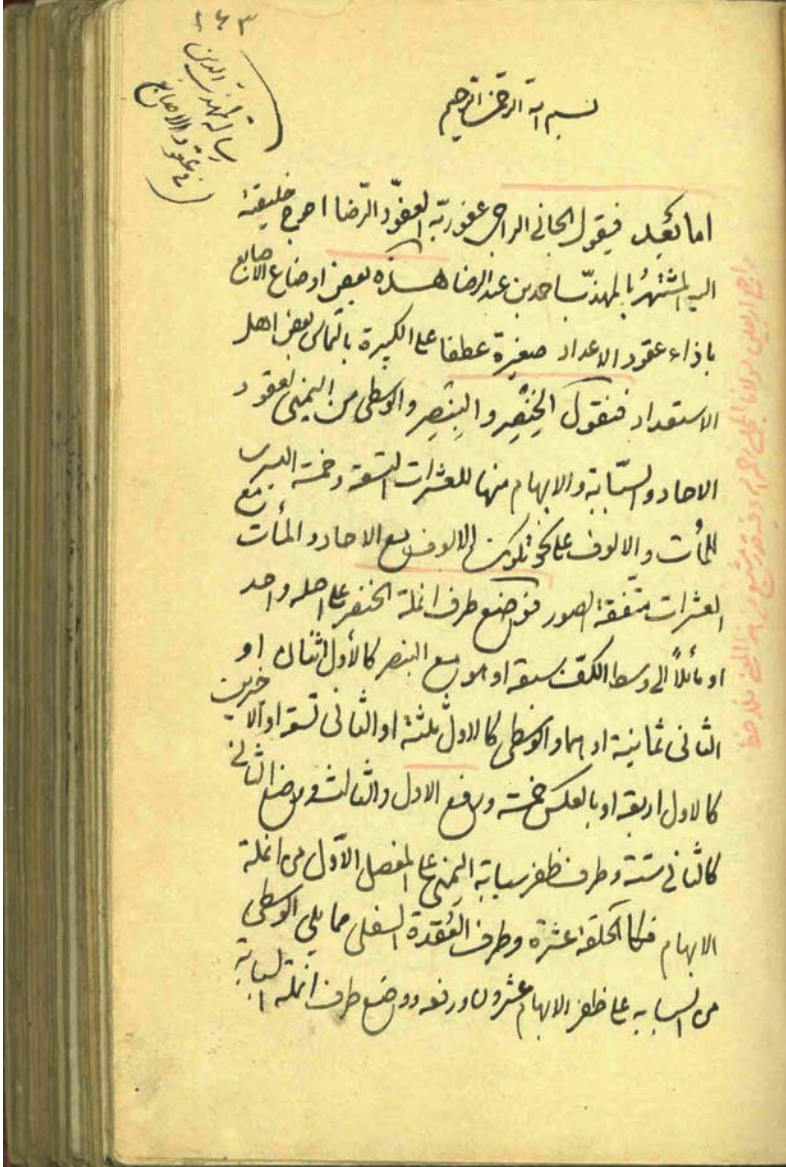 ١٦٣
رسالة مهذب الدين
في عقود الاصابع
بسم الله الرحمن الرحيم
اما بعد فيقول الجاني الراجي عفو ربه العفوّ والرّضا احوج خليقة
اليه المشتهر بالمهذب احمد بن عبد الرضا هذه بعض اوضاع الاصابع
باذاء عقود الاعداد صغيرة عطفا على الكبيرة بالتماس بعض اهل
الاستعداد فنقول الخِنْصِر والبِنْصِر والوسطى من اليمنى لعقود
الاحاد والسّبّابة والابهام منها للعشرات التسعة وخمسة اليسرى
للمأت والالوف على نحو تكون الالوف مع الاحاد والمأت مع
العشرات متّفقة الصور فوضع طرف انملة الخنصر على اصله واحد
او مائلاً الى وسط الكفّ سبعة او هو مع البنصر كالأول اثنان او
الثاني ثمانية او هما والوسطى كالاول ثلثة او الثاني تسعة او الاخيرين
كالاول اربعة او بالعكس خمسة ورفع الاول والثالث ووضع الثاني
كالثاني ستة وطرف ظفر سبابة اليمنى على المفصل الاول من انملة
الابهام فكالحلقة عشرة وطرف العُقدة السفلى مما يلي الوسطى
من السبابه على ظفر الابهام عشرون ورفعه ووضع طرف انملة السبابة